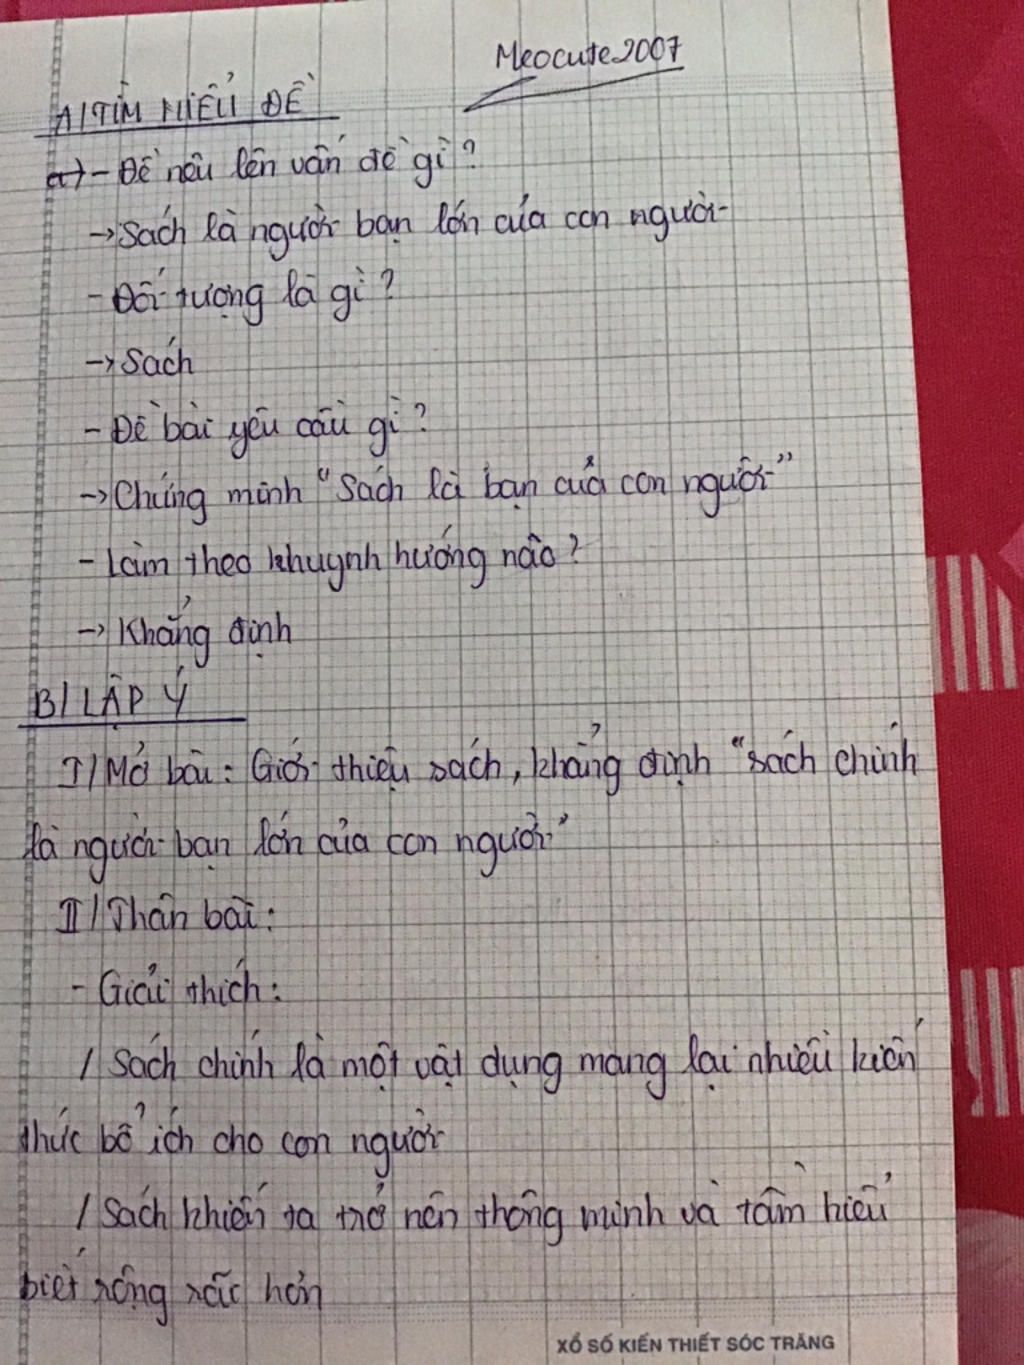 Meocute2007
A/ TÌM HIỂU ĐỀ
a) - Đề nêu lên vấn đề gì?
→ Sách là người bạn lớn của con người
- Đối tượng là gì?
→ Sách
- Đề bài yêu cầu gì?
→ Chứng minh "Sách là bạn của con người"
- Làm theo khuynh hướng nào?
→ Khẳng định
B/ LẬP Ý
I/ Mở bài: Giới thiệu sách, khẳng định "sách chính
là người bạn lớn của con người"
II/ Thân bài:
- Giải thích:
/ Sách chính là một vật dụng mang lại nhiều kiến
thức bổ ích cho con người
/ Sách khiến ta trở nên thông minh và tầm hiểu
biết rộng rãi hơn
XỔ SỐ KIẾN THIẾT SÓC TRĂNG